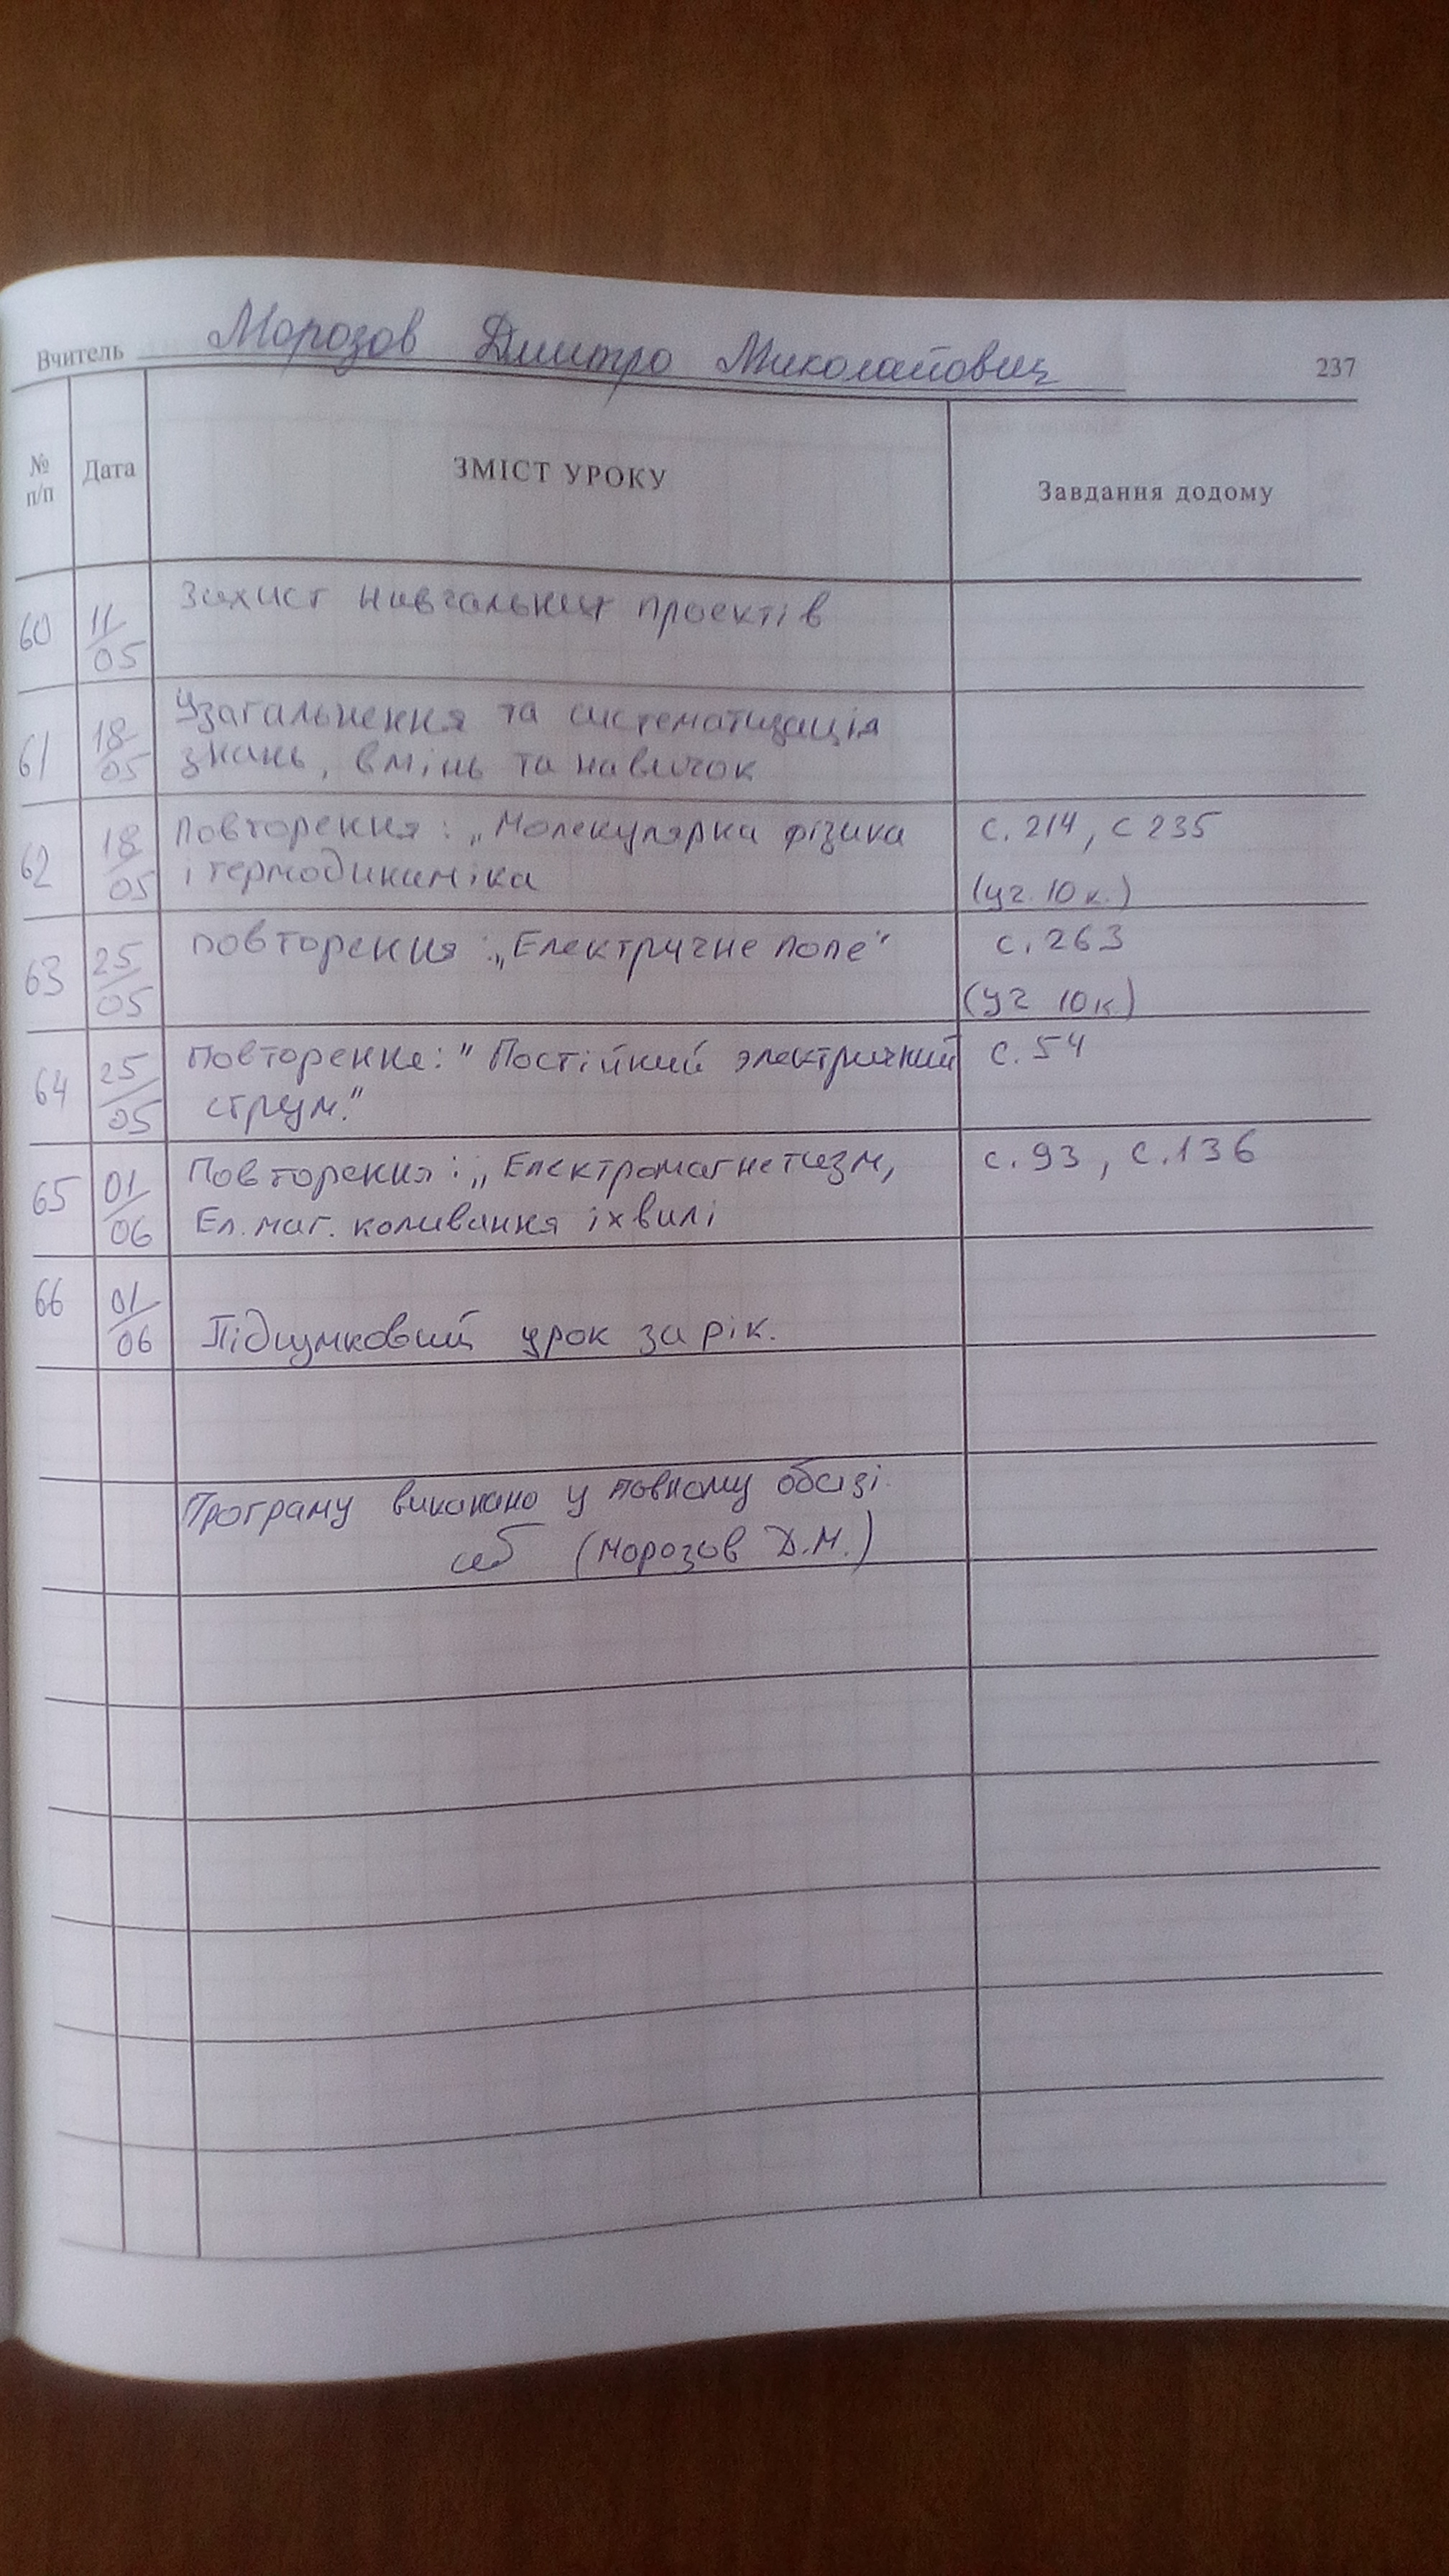 Вчитель Морозов Дмитро Миколайович 237
№ п/п Дата ЗМІСТ УРОКУ Завдання додому
60 11/05 Захист навчальних проектів
61 18/05 Узагальнення та систематизація
знань, вмінь та навичок
62 18/05 Повторення: „Молекулярна фізика с. 214, с 235
і термодинаміка (уч. 10 к.)
63 25/05 повторення: „Електричне поле" с. 263
(уч 10к)
64 25/05 Повторення: " Постійний электричний с. 54
струм."
65 01/06 Повторення: „Електромагнетизм, с. 93, с. 136
Ел. маг. коливання і хвилі
66 01/06 Підсумковий урок за рік.
Програму виконано у повному обсязі.
(Морозов Д.М.)